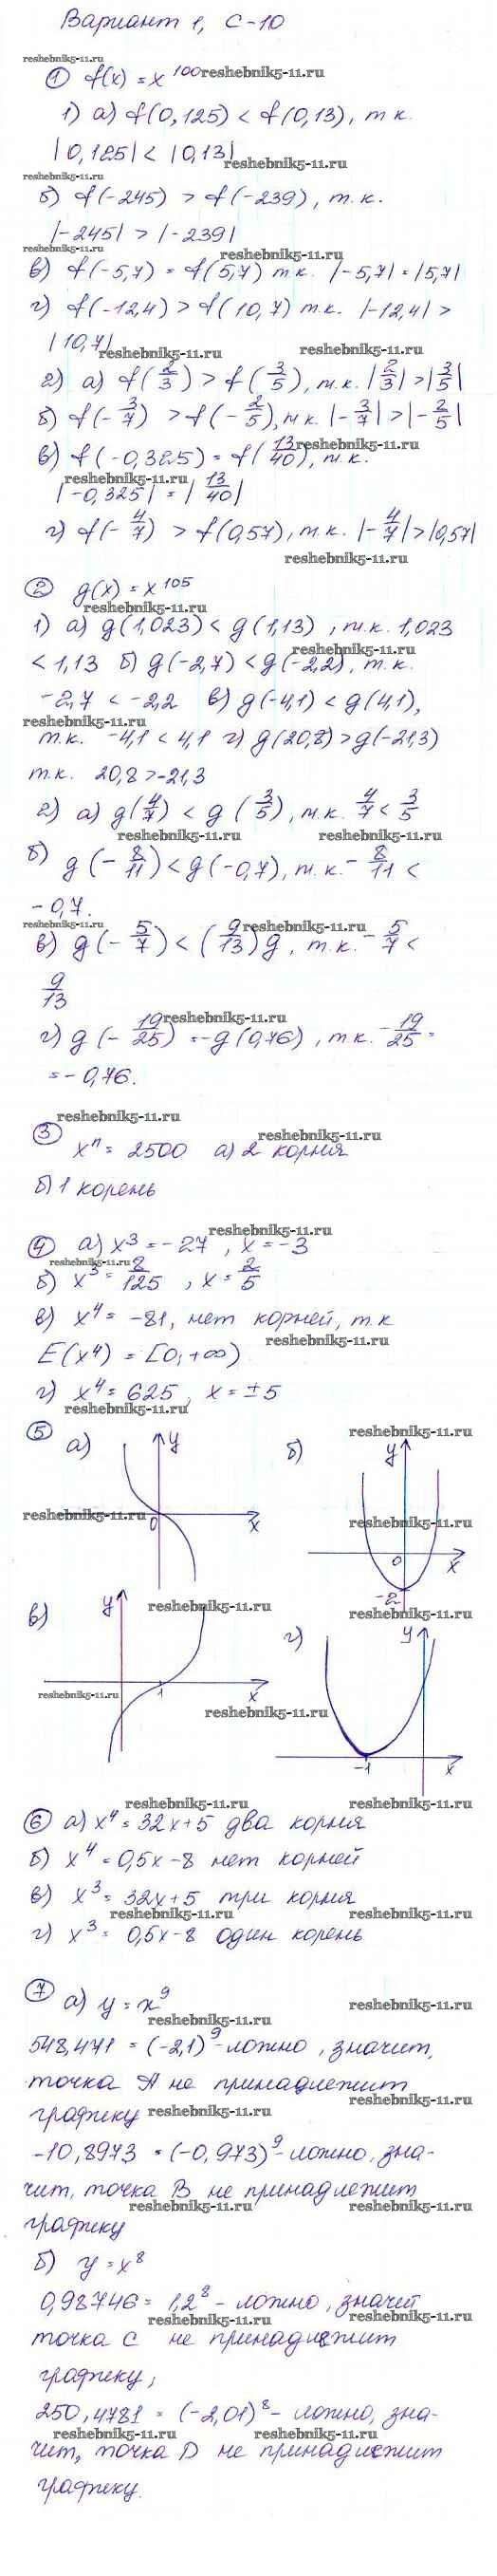 Вариант 1, С-10
reshebnik5-11.ru
① f(x) = x¹⁰⁰ reshebnik5-11.ru
1) а) f(0,125) < f(0,13), т.к.
|0,125| < |0,13| reshebnik5-11.ru
reshebnik5-11.ru
б) f(-245) > f(-239), т.к.
|-245| > |-239|
reshebnik5-11.ru reshebnik5-11.ru
в) f(-5,7) = f(5,7) т.к. |-5,7| = |5,7|
г) f(-12,4) > f(10,7) т.к. |-12,4| >
|10,7|
reshebnik5-11.ru
2) а) f(2/3) > f(3/5), т.к. |2/3| > |3/5|
б) f(-3/7) > f(-2/5), т.к. |-3/7| > |-2/5|
в) f(-0,325) = f(13/40), т.к.
reshebnik5-11.ru
|-0,325| = |13/40|
г) f(-4/7) > f(0,57), т.к. |-4/7| > |0,57|
reshebnik5-11.ru
② g(x) = x¹⁰⁵
reshebnik5-11.ru
1) а) g(1,023) < g(1,13), т.к. 1,023
reshebnik5-11.ru
< 1,13 б) g(-2,7) < g(-2,2), т.к.
-2,7 < -2,2 в) g(-4,1) < g(4,1),
reshebnik5-11.ru
т.к. -4,1 < 4,1 г) g(20,8) > g(-21,3)
т.к. 20,8 > -21,3
2) а) g(4/7) < g(3/5), т.к. 4/7 < 3/5
reshebnik5-11.ru reshebnik5-11.ru
б) g(-8/11) < g(-0,7), т.к. -8/11 <
-0,7.
reshebnik5-11.ru reshebnik5-11.ru
в) g(-5/7) < (9/13)g, т.к. -5/7 <
9/13
reshebnik5-11.ru
г) g(-19/25) = -g(0,76), т.к. -19/25 =
= -0,76.
reshebnik5-11.ru
③ reshebnik5-11.ru
xⁿ = 2500 а) 2 корня
б) 1 корень
reshebnik5-11.ru
④ а) x³ = -27, x = -3
reshebnik5-11.ru
б) x³ = 8/125, x = 2/5
в) x⁴ = -81, нет корней, т.к
reshebnik5-11.ru
E(x⁴) = [0; +∞)
г) x⁴ = 625, x = ±5
reshebnik5-11.ru
⑤ а) y б) y
reshebnik5-11.ru
reshebnik5-11.ru 0 x
reshebnik5-11.ru
0 x
-2
в) y reshebnik5-11.ru
reshebnik5-11.ru
г) y
reshebnik5-11.ru 1 x
reshebnik5-11.ru
-1 x
reshebnik5-11.ru reshebnik5-11.ru
⑥ а) x⁴ = 32x+5 два корня
б) x⁴ = 0,5x-8 нет корней
в) x³ = 32x+5 три корня
reshebnik5-11.ru reshebnik5-11.ru
г) x³ = 0,5x-8 один корень
⑦ а) y = x⁹ reshebnik5-11.ru
reshebnik5-11.ru
548,471 = (-2,1)⁹ - ложно, значит,
точка A не принадлежит
графику reshebnik5-11.ru
-10,8973 = (-0,973)⁹ - ложно, зна-
чит, точка B не принадлежит
reshebnik5-11.ru reshebnik5-11.ru
графику
б) y = x⁸
0,98746 = 1,2⁸ - ложно, значит
reshebnik5-11.ru reshebnik5-11.ru
точка C не принадлежит
графику;
250,4781 = (-2,01)⁸ - ложно, зна-
reshebnik5-11.ru reshebnik5-11.ru
чит, точка D не принадлежит
графику.